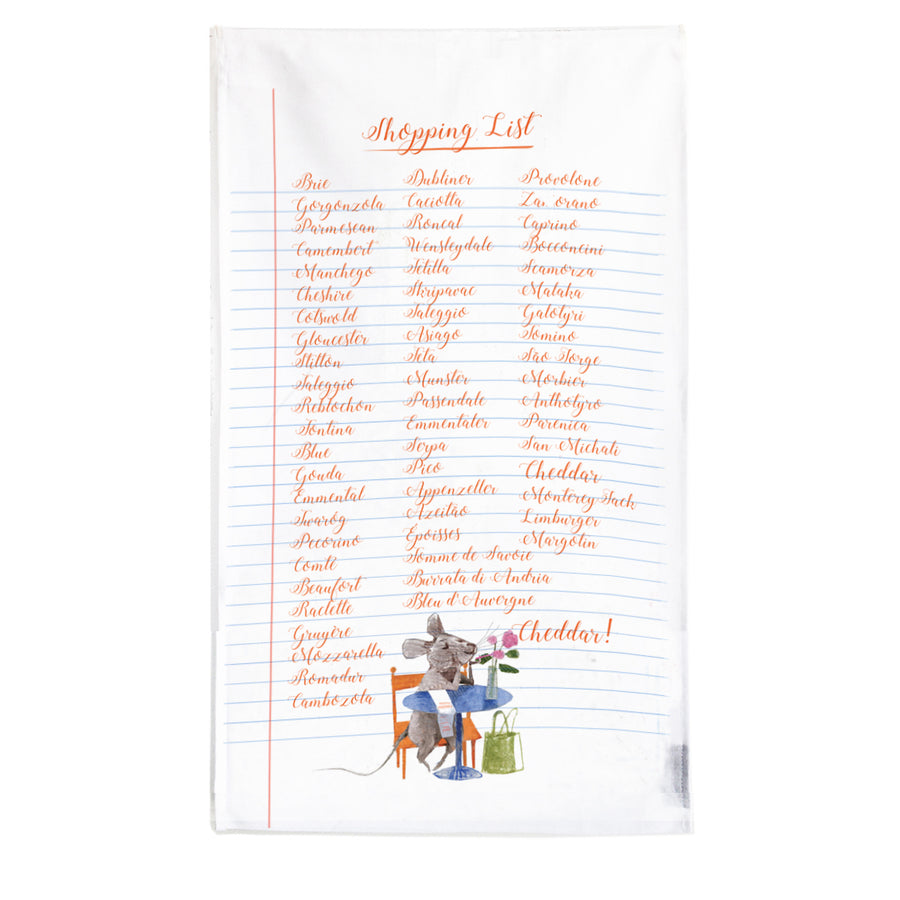 Shopping List
Brie
Gorgonzola
Parmesean
Camembert
Manchego
Cheshire
Cotswold
Gloucester
Stilton
Taleggio
Reblochon
Fontina
Blue
Gouda
Emmental
Twaróg
Pecorino
Comté
Beaufort
Raclette
Gruyère
Mozzarella
Romadur
Cambozola
Dubliner
Caciotta
Roncal
Wensleydale
Tetilla
Skripavac
Taleggio
Asiago
Feta
Munster
Passendale
Emmentaler
Serpa
Pico
Appenzeller
Azeitão
Époisses
Tomme de Savoie
Burrata di Andria
Bleu d'Auvergne
Provolone
Caprino
Bocconcini
Scamorza
Galotyri
Tomino
São Jorge
Morbier
Anthotyro
Parenica
San Michali
Cheddar
Monterey Jack
Limburger
Margotin
Cheddar!